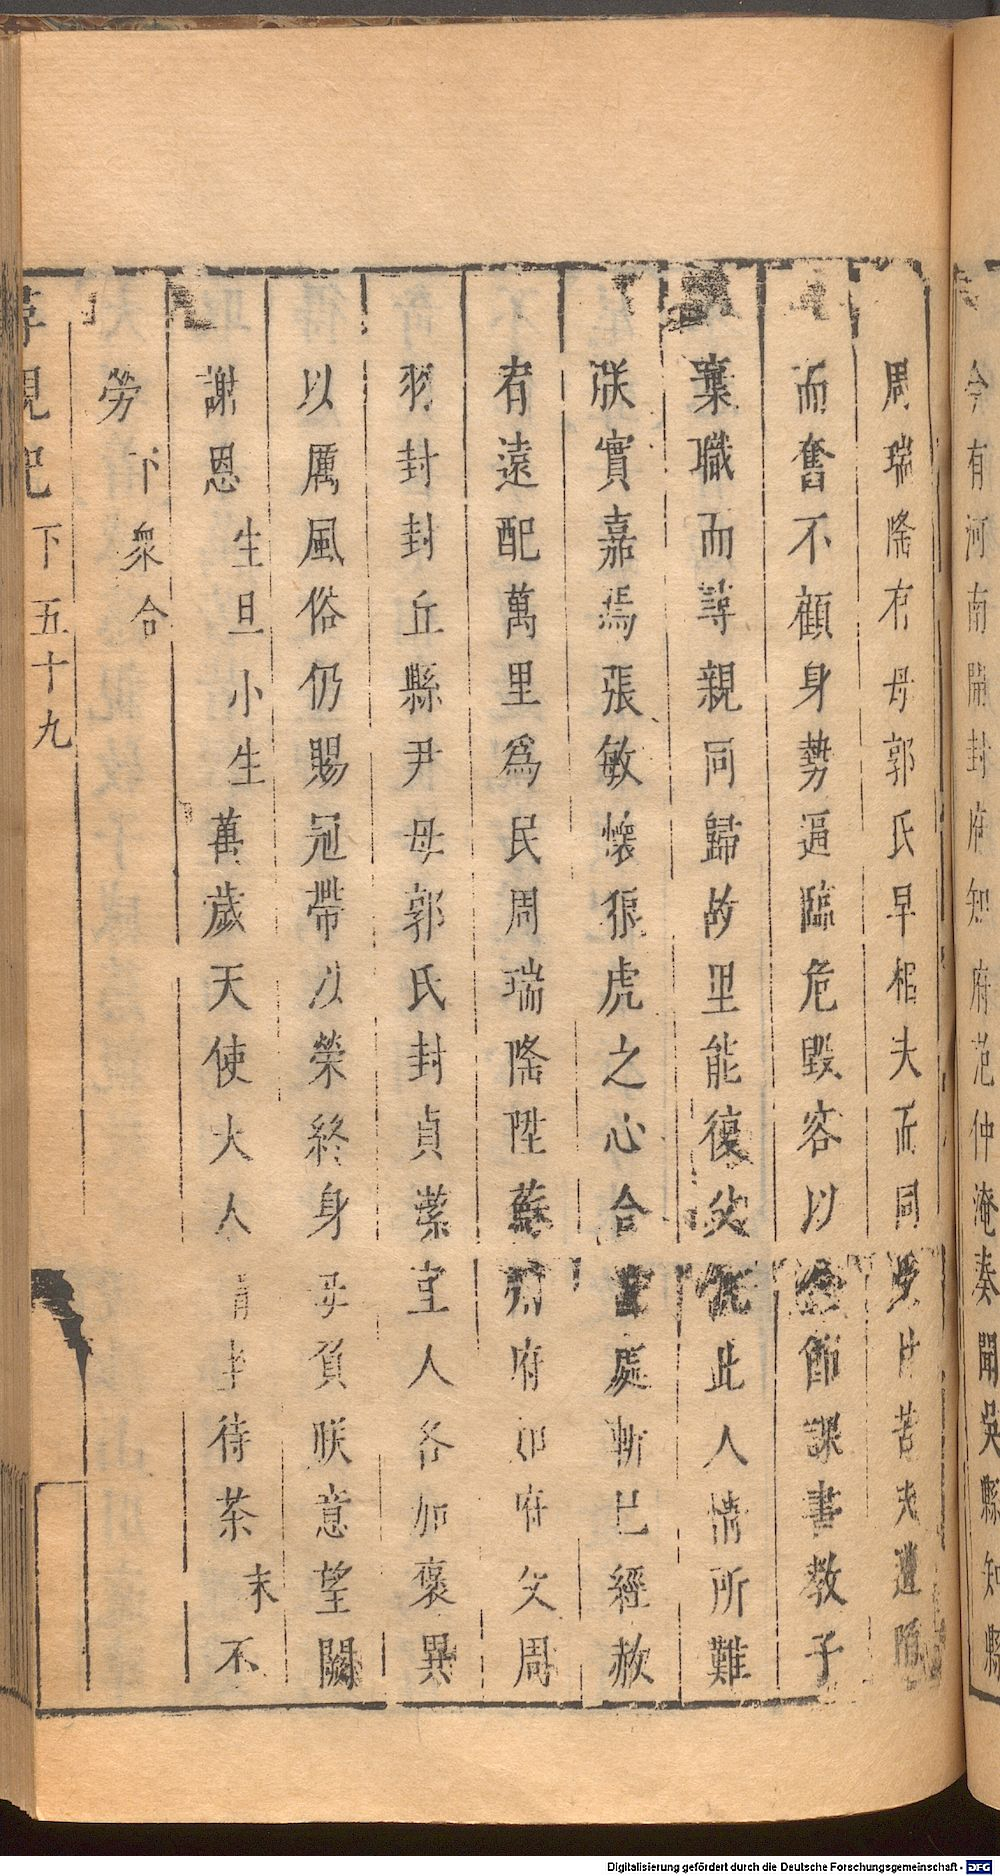 今有河南開封府知府范仲淹奏聞吳縣知縣
周瑞隆有母郭氏早相夫而同苦夫遭
而奮不顧身勢逼臨危毀容以全節課書教子
棄職而尋親同歸故里能復父仇此人情所難
朕實嘉焉張敏懷狼虎之心合處斬已經赦
宥遠配萬里為民周瑞隆陞蘇州府府父周
羽封封丘縣尹母郭氏封貞潔宜人各加褒異
以厲風俗仍賜冠帶以榮終身毋負朕意望闕
謝恩生旦小生萬歲天使大人請坐待茶末不
勞下眾合
尋親記下五十九
Digitalisierung gefördert durch die Deutsche Forschungsgemeinschaft - DFG